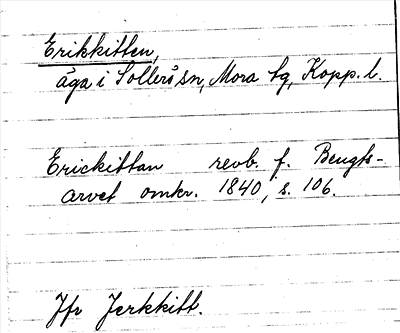 Erikkitten,
äga i Sollerö sn, Mora tg, Kopp. l.
Erickittan revb. f. Bengts-
arvet omkr. 1840, s. 106.
Jfr Jerkkitt.